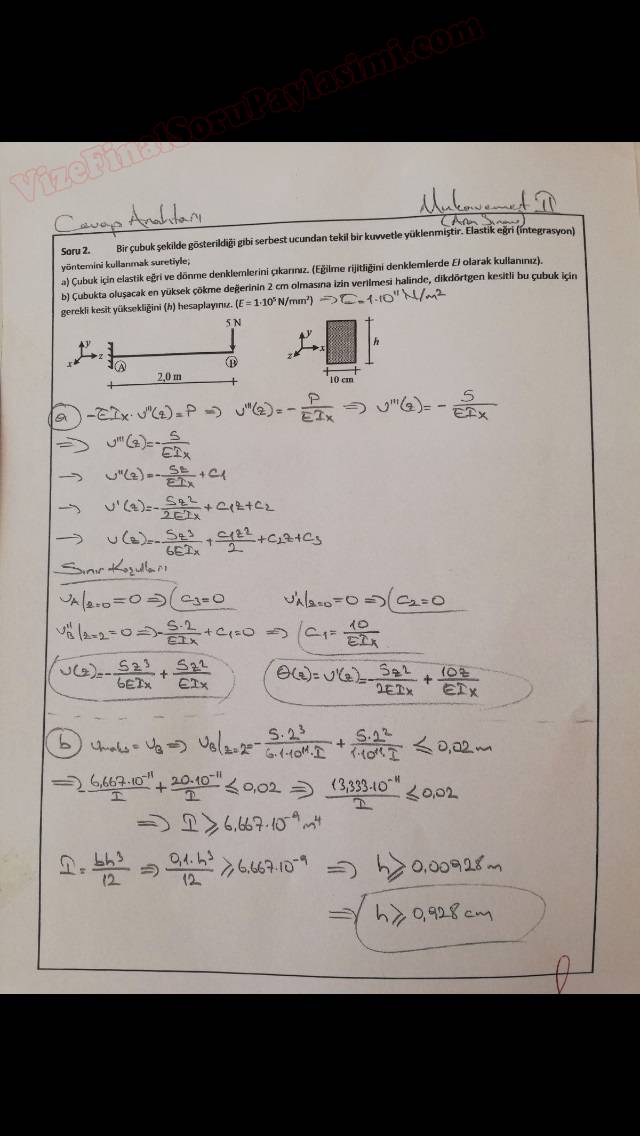 VizeFinalSoruPaylasimi.com
Cevap Anahtarı
Mukavemet II
(Ara Sınav)
Soru 2. Bir çubuk şekilde gösterildiği gibi serbest ucundan tekil bir kuvvetle yüklenmiştir. Elastik eğri (integrasyon)
yöntemini kullanmak suretiyle;
a) Çubuk için elastik eğri ve dönme denklemlerini çıkarınız. (Eğilme rijitliğini denklemlerde EI olarak kullanınız).
b) Çubukta oluşacak en yüksek çökme değerinin 2 cm olmasına izin verilmesi halinde, dikdörtgen kesitli bu çubuk için
gerekli kesit yüksekliğini (h) hesaplayınız. (E = 1·10⁵ N/mm²) => E=1·10¹¹ N/m²
5 N
y
z
x
A
B
2,0 m
y
x
z
h
10 cm
a) -EIx·υ'''(z)=P => υ'''(z)=-P/EIx => υ'''(z)=-5/EIx
=> υ'''(z)=-5/EIx
-> υ''(z)=-5z/EIx+C1
-> υ'(z)=-5z²/2EIx+C1z+C2
-> υ(z)=-5z³/6EIx+C1z²/2+C2z+C3
Sınır Koşulları
υA|z=0=0 => C3=0 υ'A|z=0=0 => C2=0
υ''B|z=2=0 => -5·2/EIx+C1=0 => C1=10/EIx
υ(z)=-5z³/6EIx+5z²/EIx θ(z)=υ'(z)=-5z²/2EIx+10z/EIx
b) υmaks=υB => υB|z=2=-5·2³/6·1·10¹¹·I+5·2²/1·10¹¹·I ≤ 0,02 m
=> -6,667·10⁻¹¹/I+20·10⁻¹¹/I ≤ 0,02 => 13,333·10⁻¹¹/I ≤ 0,02
=> I ≥ 6,667·10⁻⁹ m⁴
I=bh³/12 => 0,1·h³/12 ≥ 6,667·10⁻⁹ => h ≥ 0,00928 m
=> h ≥ 0,928 cm